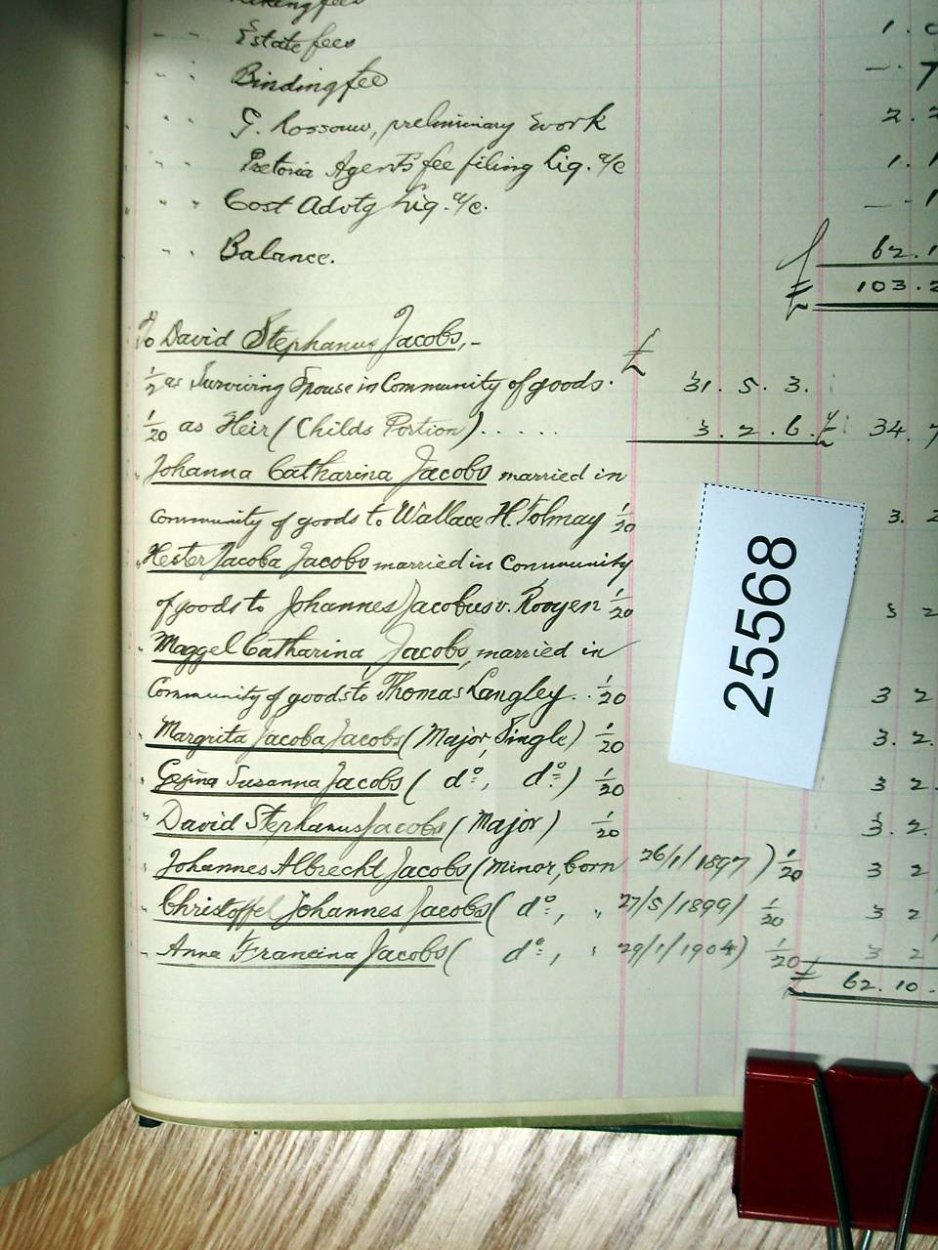 Estate fees 1.
" " Binding fee — 7
" " G. Rossouw, preliminary work 2. 2
" " Pretoria Agents fee filing Liq. a/c 1. 1
" " Cost Advtg Liq. a/c. — 1
" " Balance. 62. 1
£ 103. 2
To David Stephanus Jacobs,- £
1/2 as Surviving Spouse in Community of goods. 31. 5. 3.
1/20 as Heir (Childs Portion) . . . . . 3. 2. 6. £ 34. 7
" Johanna Catharina Jacobs married in
community of goods to Wallace H. Tolmay 1/20 3. 2
" Hester Jacoba Jacobs married in Community
of goods to Johannes Jacobus v. Rooyen 1/20 3 2
" Maggel Catharina Jacobs, married in
Community of goods to Thomas Langley . . 1/20 3 2
" Margrita Jacoba Jacobs (Major, Single) 1/20 3. 2.
" Gesina Susanna Jacobs ( do:, do:) 1/20 3 2.
" David Stephanus Jacobs (Major) 1/20 3. 2.
" Johannes Albrecht Jacobs (Minor, born 26/1/1897 ) 1/20 3 2
" Christoffel Johannes Jacobs ( do:, " 27/5/1899) 1/20 3 2
" Anna Francina Jacobs ( do:, " 29/1/1904) 1/20 3 2
£ 62. 10.
25568